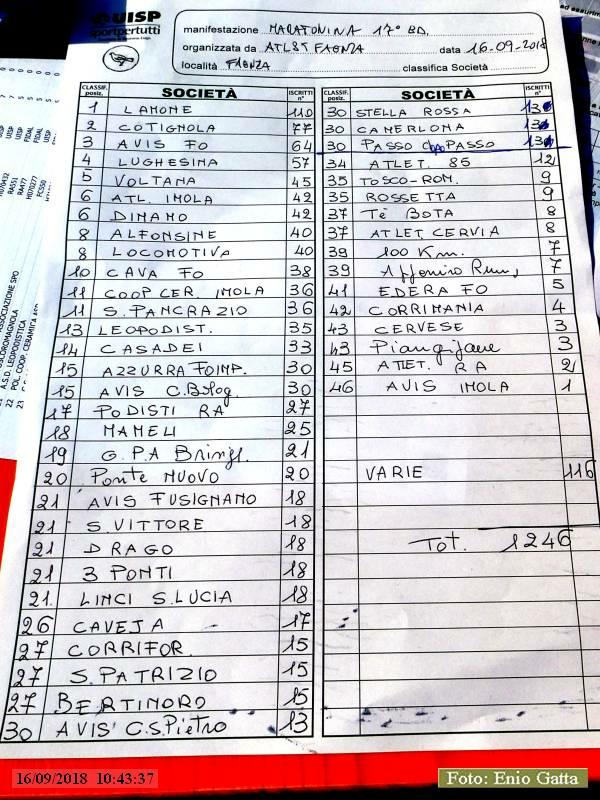 UISP
sportpertutti
manifestazione MARATONINA 17° BD.
organizzata da ATL85 FAENZA data 16-09-2018
località FAENZA classifica Società
CLASSIF. posiz. SOCIETÀ ISCRITTI n°
1 LAMONE 110
2 COTIGNOLA 77
3 AVIS FO 64
4 LUGHESINA 57
5 VOLTANA 45
6 ATL. IMOLA 42
6 DINAMO 42
8 ALFONSINE 40
8 LOCOMOTIVA 40
10 CAVA FO 38
11 COOP CER. IMOLA 36
11 S. PANCRAZIO 36
13 LEOPODIST. 35
14 CASADEI 33
15 AZZURRA FOIMP. 30
15 AVIS C.Bolog. 30
17 PODISTI RA 27
18 MAMELI 25
19 G.P.A Bringl. 21
20 Ponte NUOVO 20
21 AVIS FUSIGNANO 18
21 S. VITTORE 18
21 DRAGO 18
21 3 PONTI 18
21. LINCI S. LUCIA 18
26 CAVEJA 17
27 CORRIFOR. 15
27 S. PATRIZIO 15
27 BERTINORO 15
30 AVIS C.S.Pietro 13
CLASSIF. posiz. SOCIETÀ ISCRITTI n°
30 STELLA ROSSA 13
30 CAMERLONA 13
30 PASSO PASSO 13
34 ATLET. 85 12
35 TOSCO-ROM. 9
35 ROSSETTA 9
37 TÈ BOTA 8
37 ATLET. CERVIA 8
39 100 Km. 7
39 Run, 7
41 EDERA FO 5
42 CORRIMANIA 4
43 CERVESE 3
43 Piangipane 3
45 ATLET. RA 2
46 AVIS IMOLA 1
VARIE 116
Tot. 1246
16/09/2018 10:43:37
Foto: Enio Gatta